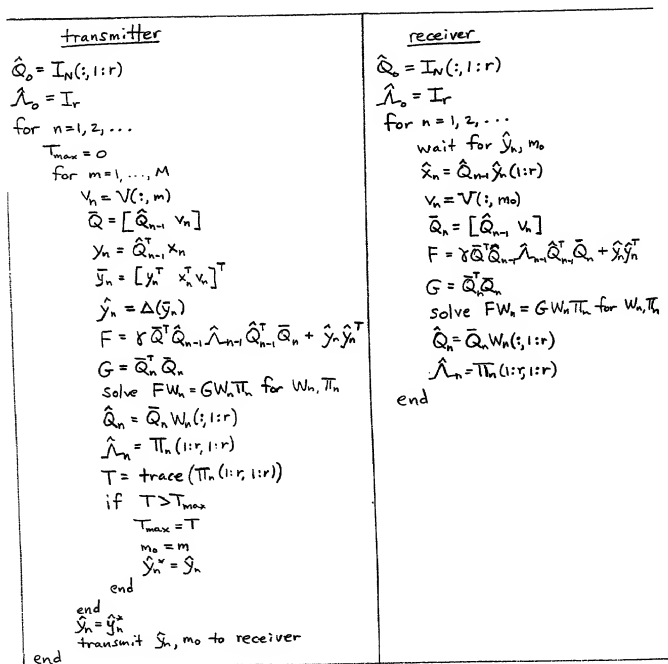 transmitter
Q̂₀ = I_N(:,1:r)
Λ̂₀ = I_r
for n=1,2,...
T_max = 0
for m=1,...,M
v_n = V(:,m)
Q̄ = [Q̂_{n-1} v_n]
y_n = Q̂ᵀ_{n-1} x_n
ȳ_n = [y_nᵀ x_nᵀ v_n]ᵀ
ŷ_n = Δ(ȳ_n)
F = γ Q̄ᵀ Q̂_{n-1} Λ̂_{n-1} Q̂ᵀ_{n-1} Q̄_n + ŷ_n ŷ_nᵀ
G = Q̄_nᵀ Q̄_n
solve FW_n = GW_n Π_n for W_n, Π_n
Q̂_n = Q̄_n W_n(:,1:r)
Λ̂_n = Π_n(1:r,1:r)
T = trace(Π_n(1:r,1:r))
if T>T_max
T_max = T
m₀ = m
ŷ_n* = ŷ_n
end
end
ŷ_n = ŷ_n*
transmit ŷ_n, m₀ to receiver
end
receiver
Q̂₀ = I_N(:,1:r)
Λ̂₀ = I_r
for n=1,2,...
wait for ŷ_n, m₀
x̂_n = Q̂_{n-1} ŷ_n(1:r)
v_n = V(:,m₀)
Q̄_n = [Q̂_{n-1} v_n]
F = γ Q̄ᵀ Q̂_{n-1} Λ̂_{n-1} Q̂ᵀ_{n-1} Q̄_n + ŷ_n ŷ_nᵀ
G = Q̄_nᵀ Q̄_n
solve FW_n = GW_n Π_n for W_n, Π_n
Q̂_n = Q̄_n W_n(:,1:r)
Λ̂_n = Π_n(1:r,1:r)
end